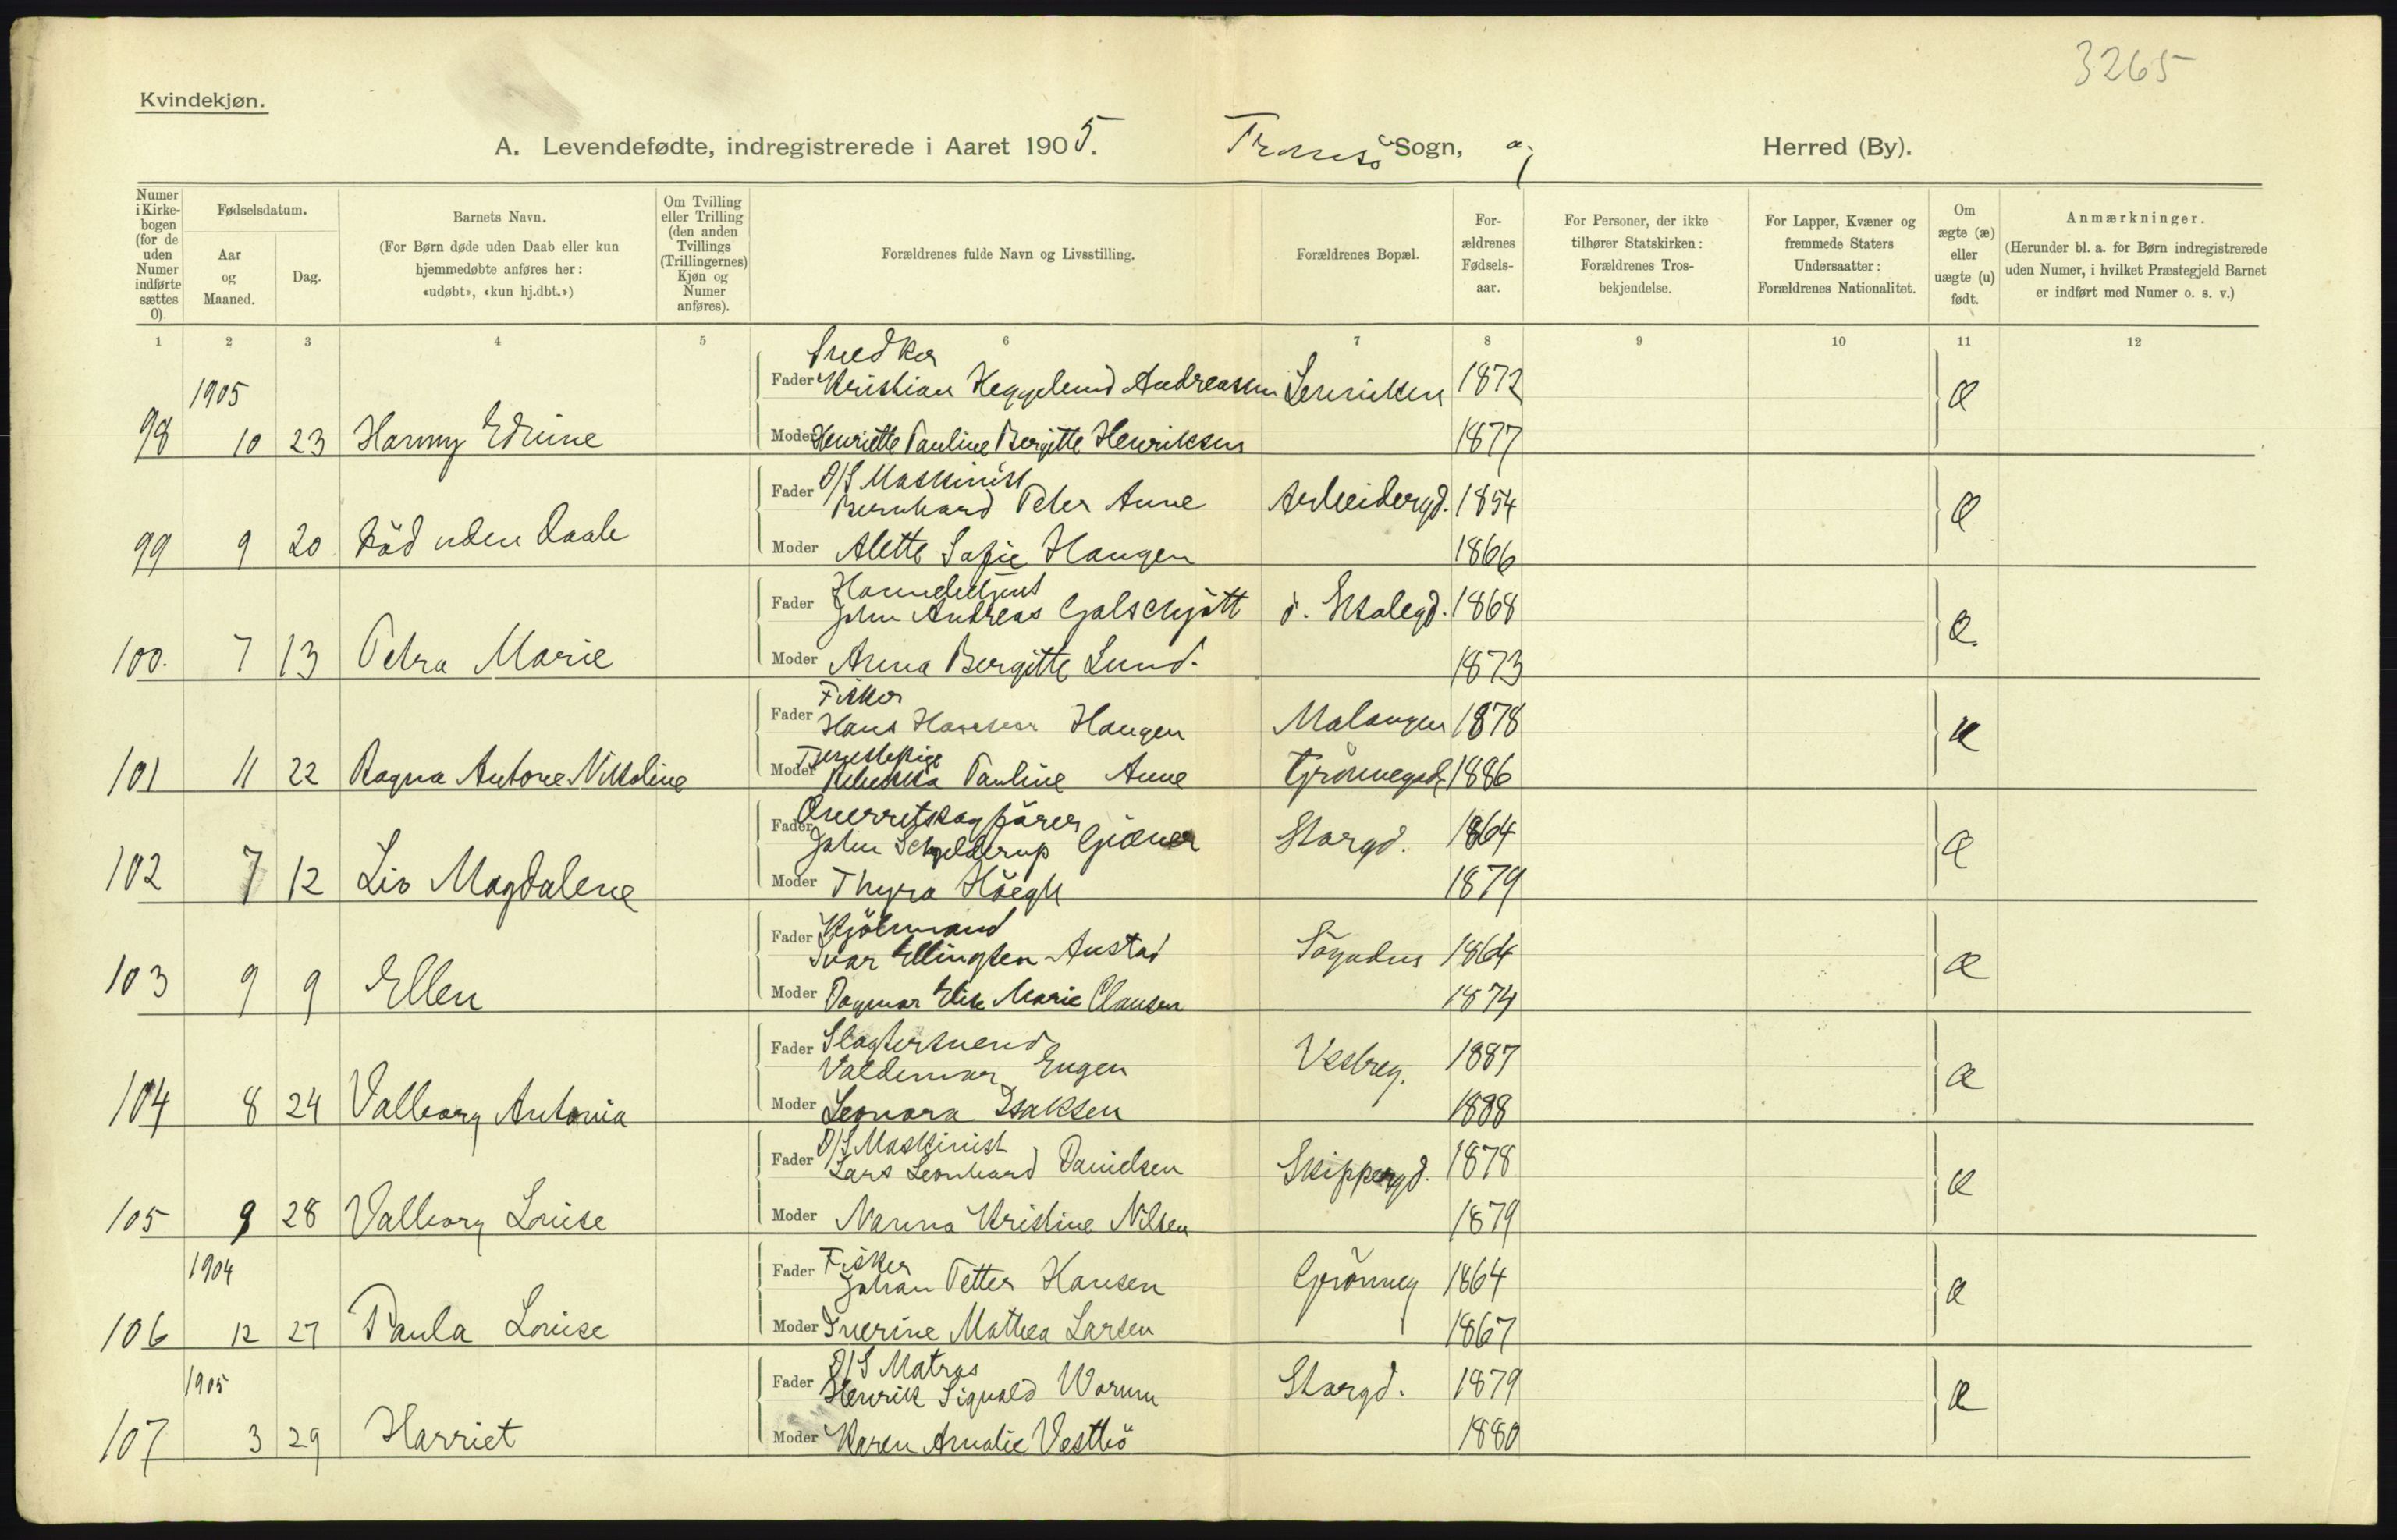 3265
Kvindekjøn.
A. Levendefødte, indregistrerede i Aaret 1905. Tromsö Sogn, og Herred (By).
Numer i Kirkebogen (for de uden Numer indførte sættes 0).
Fødselsdatum.
Aar og Maaned.
Dag.
Barnets Navn.
(For Børn døde uden Daab eller kun hjemmedøbte anføres her: «udøbt», «kun hj.dbt.»)
Om Tvilling eller Trilling (den anden Tvillings (Trillingernes) Kjøn og Numer anføres).
Forældrenes fulde Navn og Livsstilling.
Forældrenes Bopæl.
Forældrenes Fødselsaar.
For Personer, der ikke tilhører Statskirken: Forældrenes Trosbekjendelse.
For Lapper, Kvæner og fremmede Staters Undersaatter: Forældrenes Nationalitet.
Om ægte (æ) eller uægte (u) født.
Anmærkninger.
(Herunder bl. a. for Børn indregistrerede uden Numer, i hvilket Præstegjeld Barnet er indført med Numer o. s. v.)
1 2 3 4 5 6 7 8 9 10 11 12
Snedker
1905 Fader Kristian Heggelund Andreassen 1872 æ
98 10 23 Harmy Edvine Moder Henriette Pauline Bergitte Henriksen 1877
D/S Maskinist
Fader Bernhard Peter Aune Arbeidergd. 1854 æ
99 9 20 Död uden Daab Moder Alette Sofie Haugen 1866
Fader John Andreas Galschjött ö. Skolegd. 1868 æ
100. 7 13 Petra Marie Moder Anna Bergitte Lund. 1873
Fisker
Fader Hans Hansen Haugen Malangen 1878 u
Tjenestepige
101 11 22 Ragna Antone Nikoline Moder Rebekka Pauline Aune Grönnegad. 1886
Overretssagförer
Fader John Schjelderup Giæver Storgd. 1864 æ
102 7 12 Liv Magdalene Moder Thyra Höegh 1879
Kjöbmand
Fader Ivar Ellingsen Austad 1864 æ
103 9 9 Ellen Moder Dagmar Elise Marie Clausen 1874
Slagtersvend
Fader Valdemar Eugen Vestreg. 1887 æ
104 8 24 Valborg Antonia Moder Leonora Isaksen 1888
D/S Maskinist
Fader Lars Leonhard Danielsen Skippergd. 1878 æ
105 9 28 Valborg Louise Moder Nanna Kristine Nilsen 1879
Fisker
1904 Fader Johan Petter Hansen Grönneg 1864 æ
106 12 27 Paula Louise Moder Iverine Mathea Larsen 1867
D/S Matros
1905 Fader Henrik Sigvald Worum Storgd. 1879 æ
107 3 29 Harriet Moder Karen Amalie Vestbö 1880